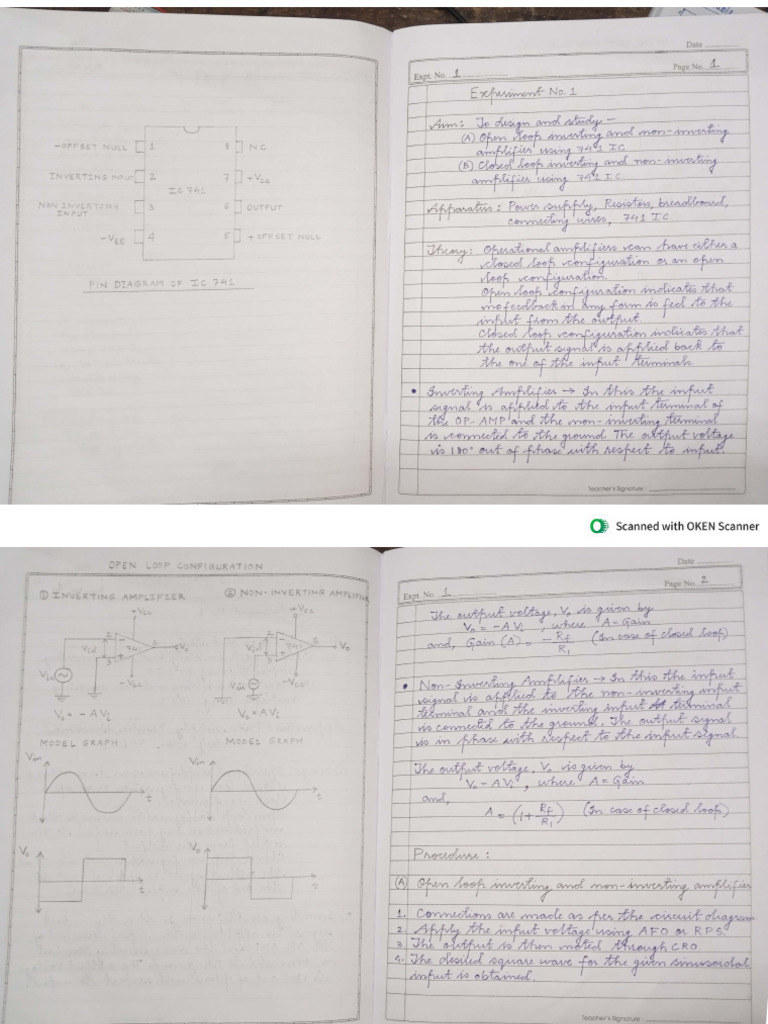 -OFFSET NULL 1 8 NC
INVERTING INPUT 2 7 +Vcc
IC 741
NON INVERTING INPUT 3 6 OUTPUT
-VEE 4 5 + OFFSET NULL
PIN DIAGRAM OF IC 741
Date
Expt. No. 1 Page No. 1
Experiment No. 1
Aim: To design and study -
(A) Open loop inverting and non-inverting
amplifier using 741 IC
(B) Closed loop inverting and non-inverting
amplifier using 741 IC
Apparatus: Power supply, Resistors, breadboard,
connecting wires, 741 IC
Theory: Operational amplifiers can have either a
closed loop configuration or an open
loop configuration.
Open loop configuration indicates that
no feedback in any form is fed to the
input from the output
Closed loop configuration indicates that
the output signal is applied back to
the one of the input terminals.
• Inverting Amplifier → In this the input
signal is applied to the input terminal of
the OP-AMP and the non-inverting terminal
is connected to the ground The output voltage
is 180° out of phase with respect to input.
Teacher's Signature :
Scanned with OKEN Scanner
OPEN LOOP CONFIGURATION
① INVERTING AMPLIFIER ② NON-INVERTING AMPLIFIER
+Vcc +Vcc
2 741 6 Vo 2 741 6 Vo
Vid Vid
3 3
Vin Vin
-Vcc -Vcc
Vo = -AVi Vo = AVi
MODEL GRAPH MODEL GRAPH
Vin t Vin t
Vo t Vo t
Date
Expt. No. 1 Page No. 2
The output voltage, Vo is given by
Vo = -AVi, where A = Gain
and, Gain (A) = -Rf/R1 (In case of closed loop)
• Non-Inverting Amplifier → In this the input
signal is applied to the non-inverting input
terminal and the inverting input terminal
is connected to the ground. The output signal
is in phase with respect to the input signal
The output voltage, Vo is given by
Vo - AVi, where A = Gain
and,
A = (1+ Rf/R1) (In case of closed loop)
Procedure :
(A) Open loop inverting and non-inverting amplifier
1. Connections are made as per the circuit diagram
2. Apply the input voltage using AFO or RPS.
3 The output is then noted through CRO
4. The desired square wave for the given sinusoidal
input is obtained.
Teacher's Signature :